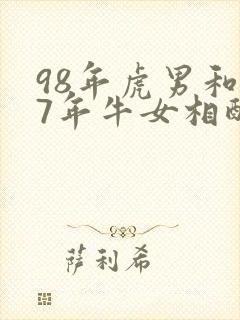 98年虎男和
7年牛女相
萨利希